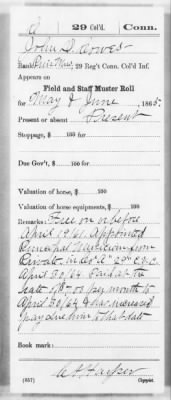 29 Col'd. Conn.
John S.
29 Reg't Conn. Col'd Inf.
Appears on
Field and Staff Muster Roll
for May & June, 1865.
Present or absent Present
Stoppage, $ 100 for
Due Gov't, $ 100 for
Valuation of horse, $ 100
Valuation of horse equipments, $ 100
Remarks: Free on or before
April 19/61. Appointed
Principal Musician from
Private Co "A" 29" C.V.
April 30/64 Paid at the
rate of $ 00 pay month to
April 30/64 & has increased
pay due him to that date
Book mark:
(857) Copyist.